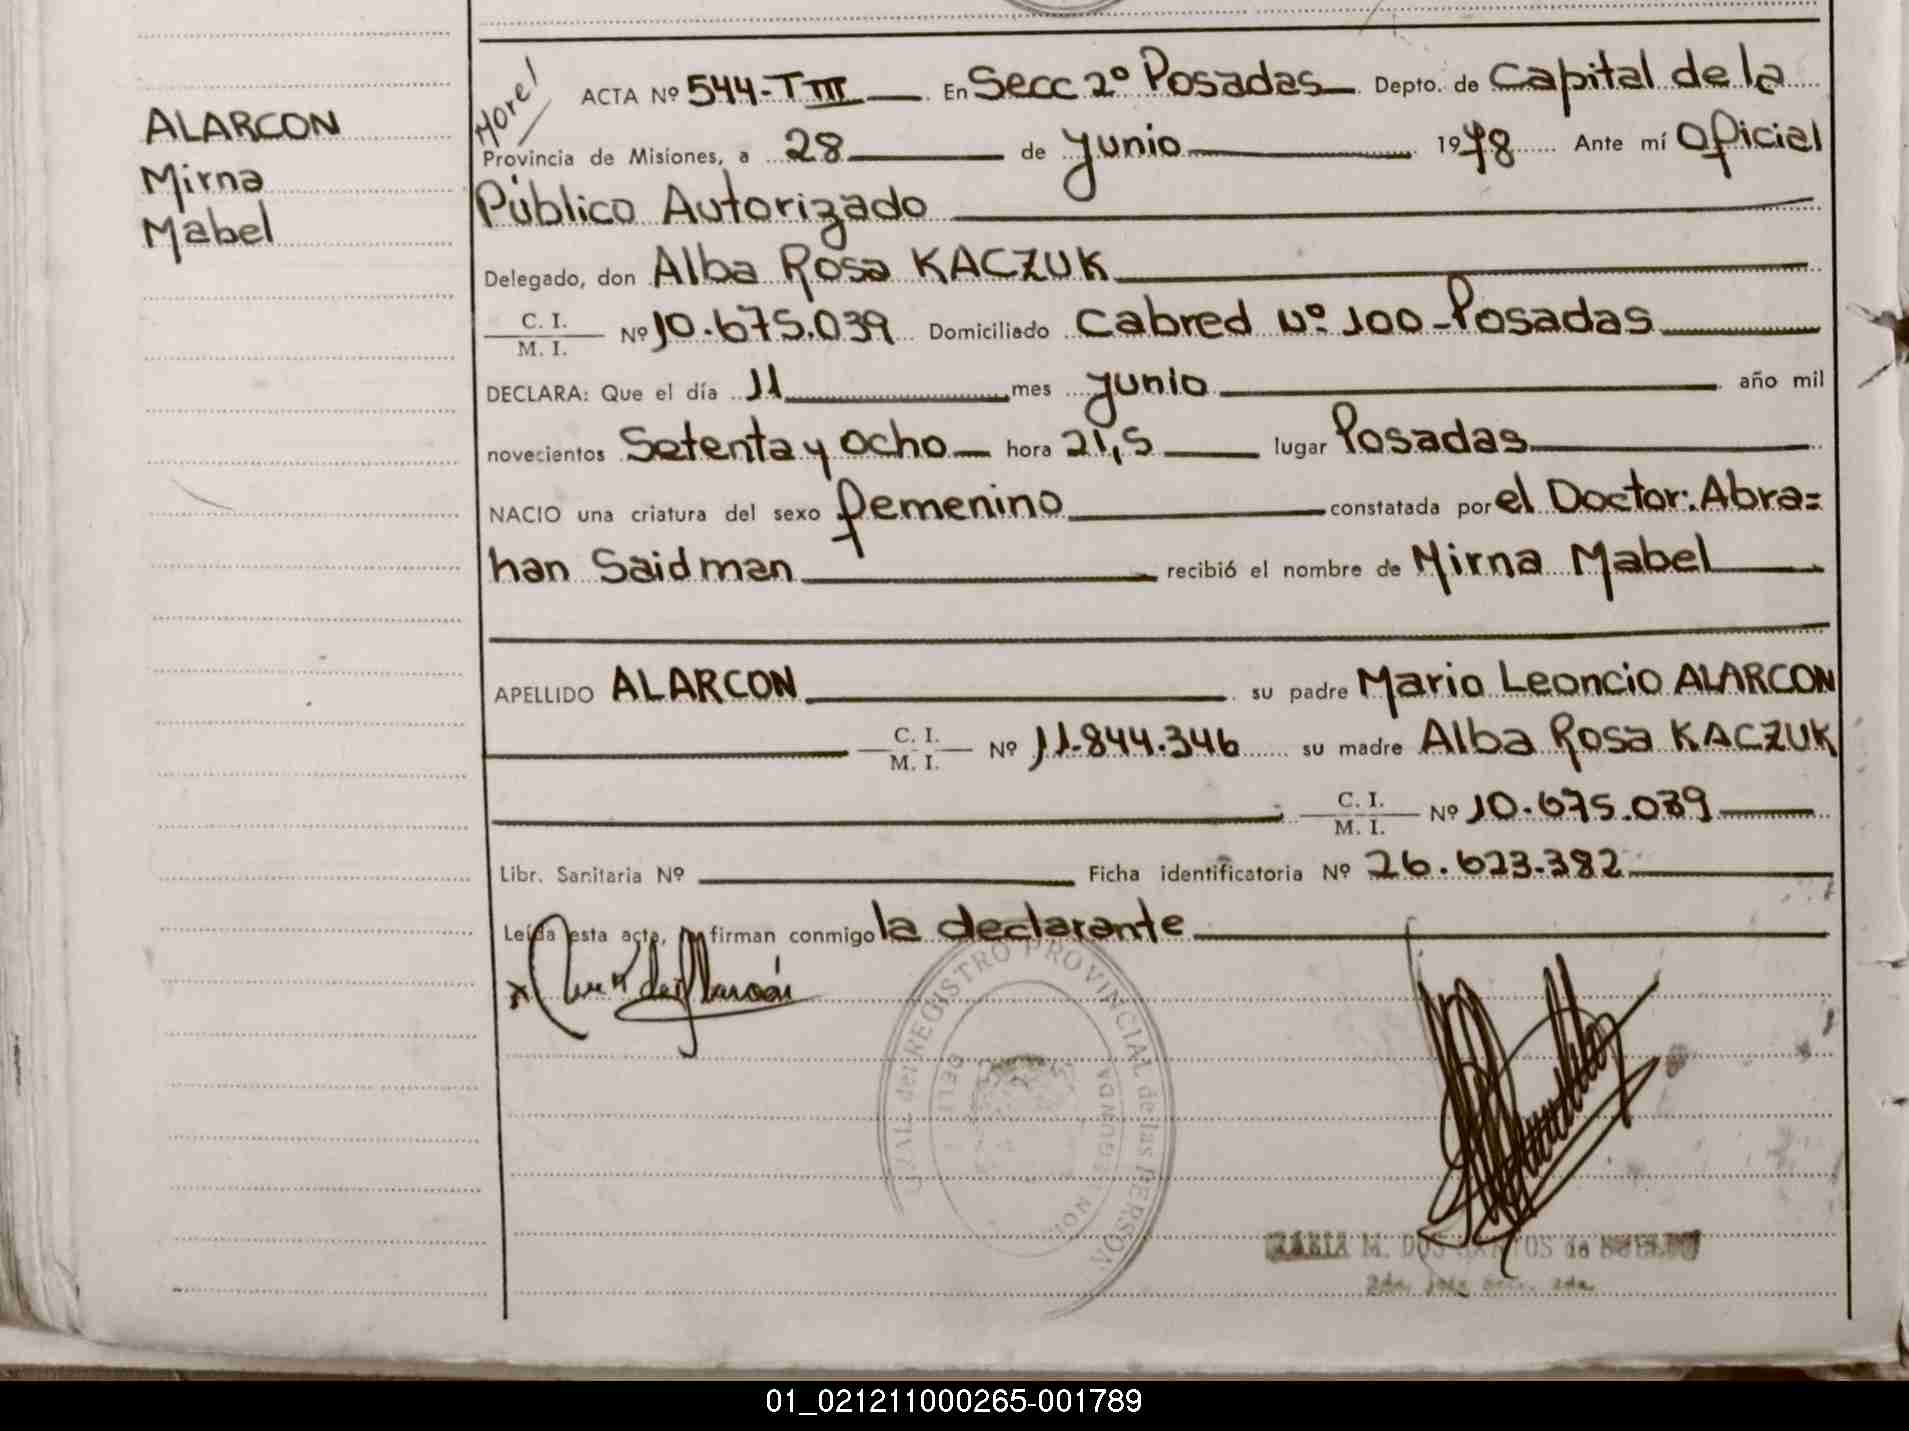 ALARCON
Mirna
Mabel
ACTA Nº 544-TIII En Secc 2º Posadas Depto. de Capital de la
Provincia de Misiones, a 28 de Junio 1978 Ante mí Oficial
Público Autorizado
Delegado, don Alba Rosa KACZUK
C. I.
M. I. Nº 10.675.039 Domiciliado Cabred Nº 100-Posadas
DECLARA: Que el día 11 mes Junio año mil
novecientos Setenta y Ocho hora 21,5 lugar Posadas
NACIO una criatura del sexo femenino constatada por el Doctor: Abra=
han Saidman recibió el nombre de Mirna Mabel
APELLIDO ALARCON su padre Mario Leoncio ALARCON
C. I.
M. I. Nº 11.844.346 su madre Alba Rosa KACZUK
C. I.
M. I. Nº 10.675.039
Libr. Sanitaria Nº Ficha identificatoria Nº 26.623.382
Leída esta acta, firman conmigo la declarante
REGISTRO PROVINCIAL de las PERSON
SEGUNDA
M. DOS SANTOS de
01_021211000265-001789